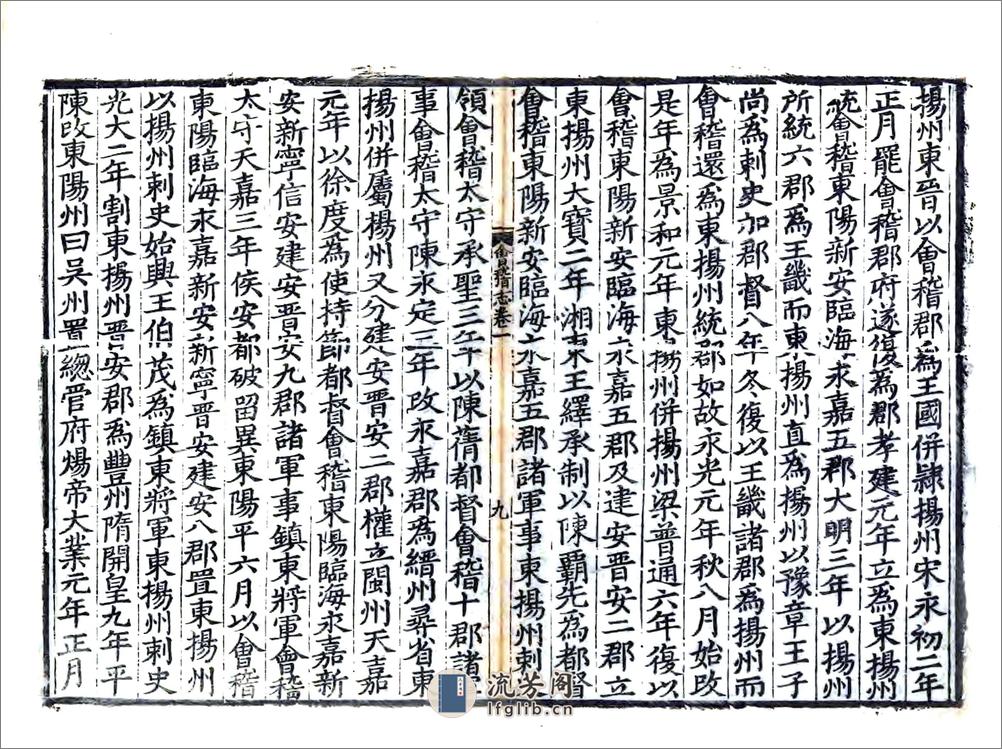 揚州東晉以會稽郡爲王國併隷揚州宋永初二年
正月罷會稽郡府遂復爲郡孝建元年立爲東揚州
統會稽東陽新安臨海永嘉五郡大明三年以揚州
所統六郡爲王畿而東揚州直爲揚州以豫章王子
尚爲刺史加郡督八年冬復以王畿諸郡爲揚州而
會稽還爲東揚州統郡如故永光元年秋八月始改
是年爲景和元年東揚州併揚州梁普通六年復以
會稽東陽新安臨海永嘉五郡及建安晉安二郡立
東揚州大寶二年湘東王繹承制以陳霸先為都督
會稽東陽新安臨海永嘉五郡諸軍事東揚州刺
會稽志卷一
九
領會稽太守承聖三年以陳蒨都督會稽十郡諸
事會稽太守陳永定三年改永嘉郡爲縉州尋省東
揚州併屬揚州又分建安晉安二郡權立閩州天嘉
元年以徐度爲使持節都督會稽東陽臨海永嘉新
安新寧信安建安晉安九郡諸軍事鎮東將軍會稽
太守天嘉三年侯安都破留異東陽平六月以會稽
東陽臨海永嘉新安新寧晉安建安八郡置東揚州
以揚州刺史始興王伯茂爲鎮東將軍東揚州刺史
光大二年割東揚州晉安郡爲豐州隋開皇九年平
陳改東陽州曰吳州置總管府煬帝大業元年正月
流芳阁
lfglib.cn